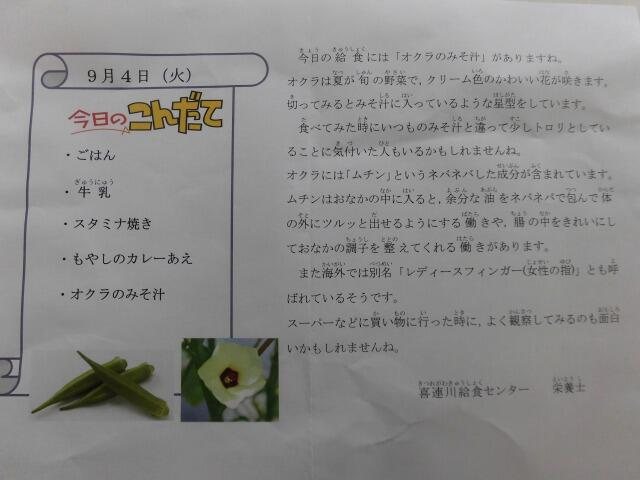 9月4日（火）
今日のこんだて
・ごはん
・牛乳
・スタミナ焼き
・もやしのカレーあえ
・オクラのみそ汁
今日の給食には「オクラのみそ汁」がありますね。
オクラは夏が旬の野菜で，クリーム色のかわいい花が咲きます。
切ってみるとみそ汁に入っているような星型をしています。
食べてみた時にいつものみそ汁と違って少しトロリとしてい
ることに気付いた人もいるかもしれませんね。
オクラには「ムチン」というネバネバした成分が含まれています。
ムチンはおなかの中に入ると，余分な油をネバネバで包んで体
の外にツルッと出せるようにする働きや，腸の中をきれいにし
ておなかの調子を整えてくれる働きがあります。
また海外では別名「レディースフィンガー(女性の指)」とも呼
ばれているそうです。
スーパーなどに買い物に行った時に，よく観察してみるのも面白
いかもしれませんね。
喜連川給食センター　栄養士